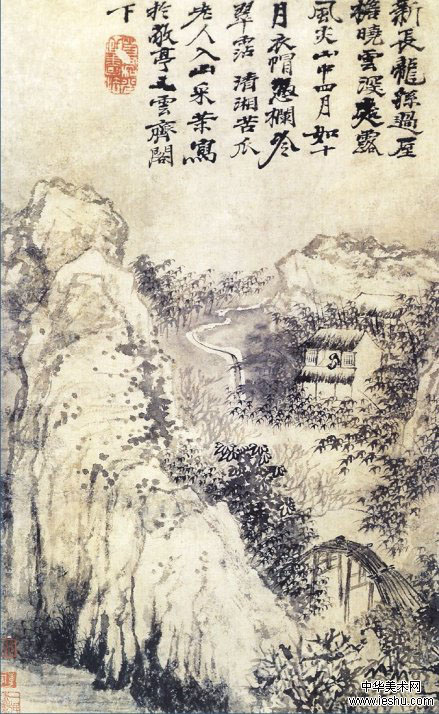 新長龍孫過屋
檐曉雲深處露
風尖山中四月如十
月衣帽憑欄冷
翠沾清湘苦瓜
老人入山采茶寫
於敬亭之雲齊閣
下
中华美术网
www.ieshu.com